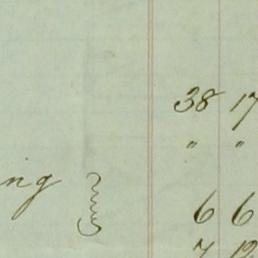 38 17
" "
ng
6 6
7 12